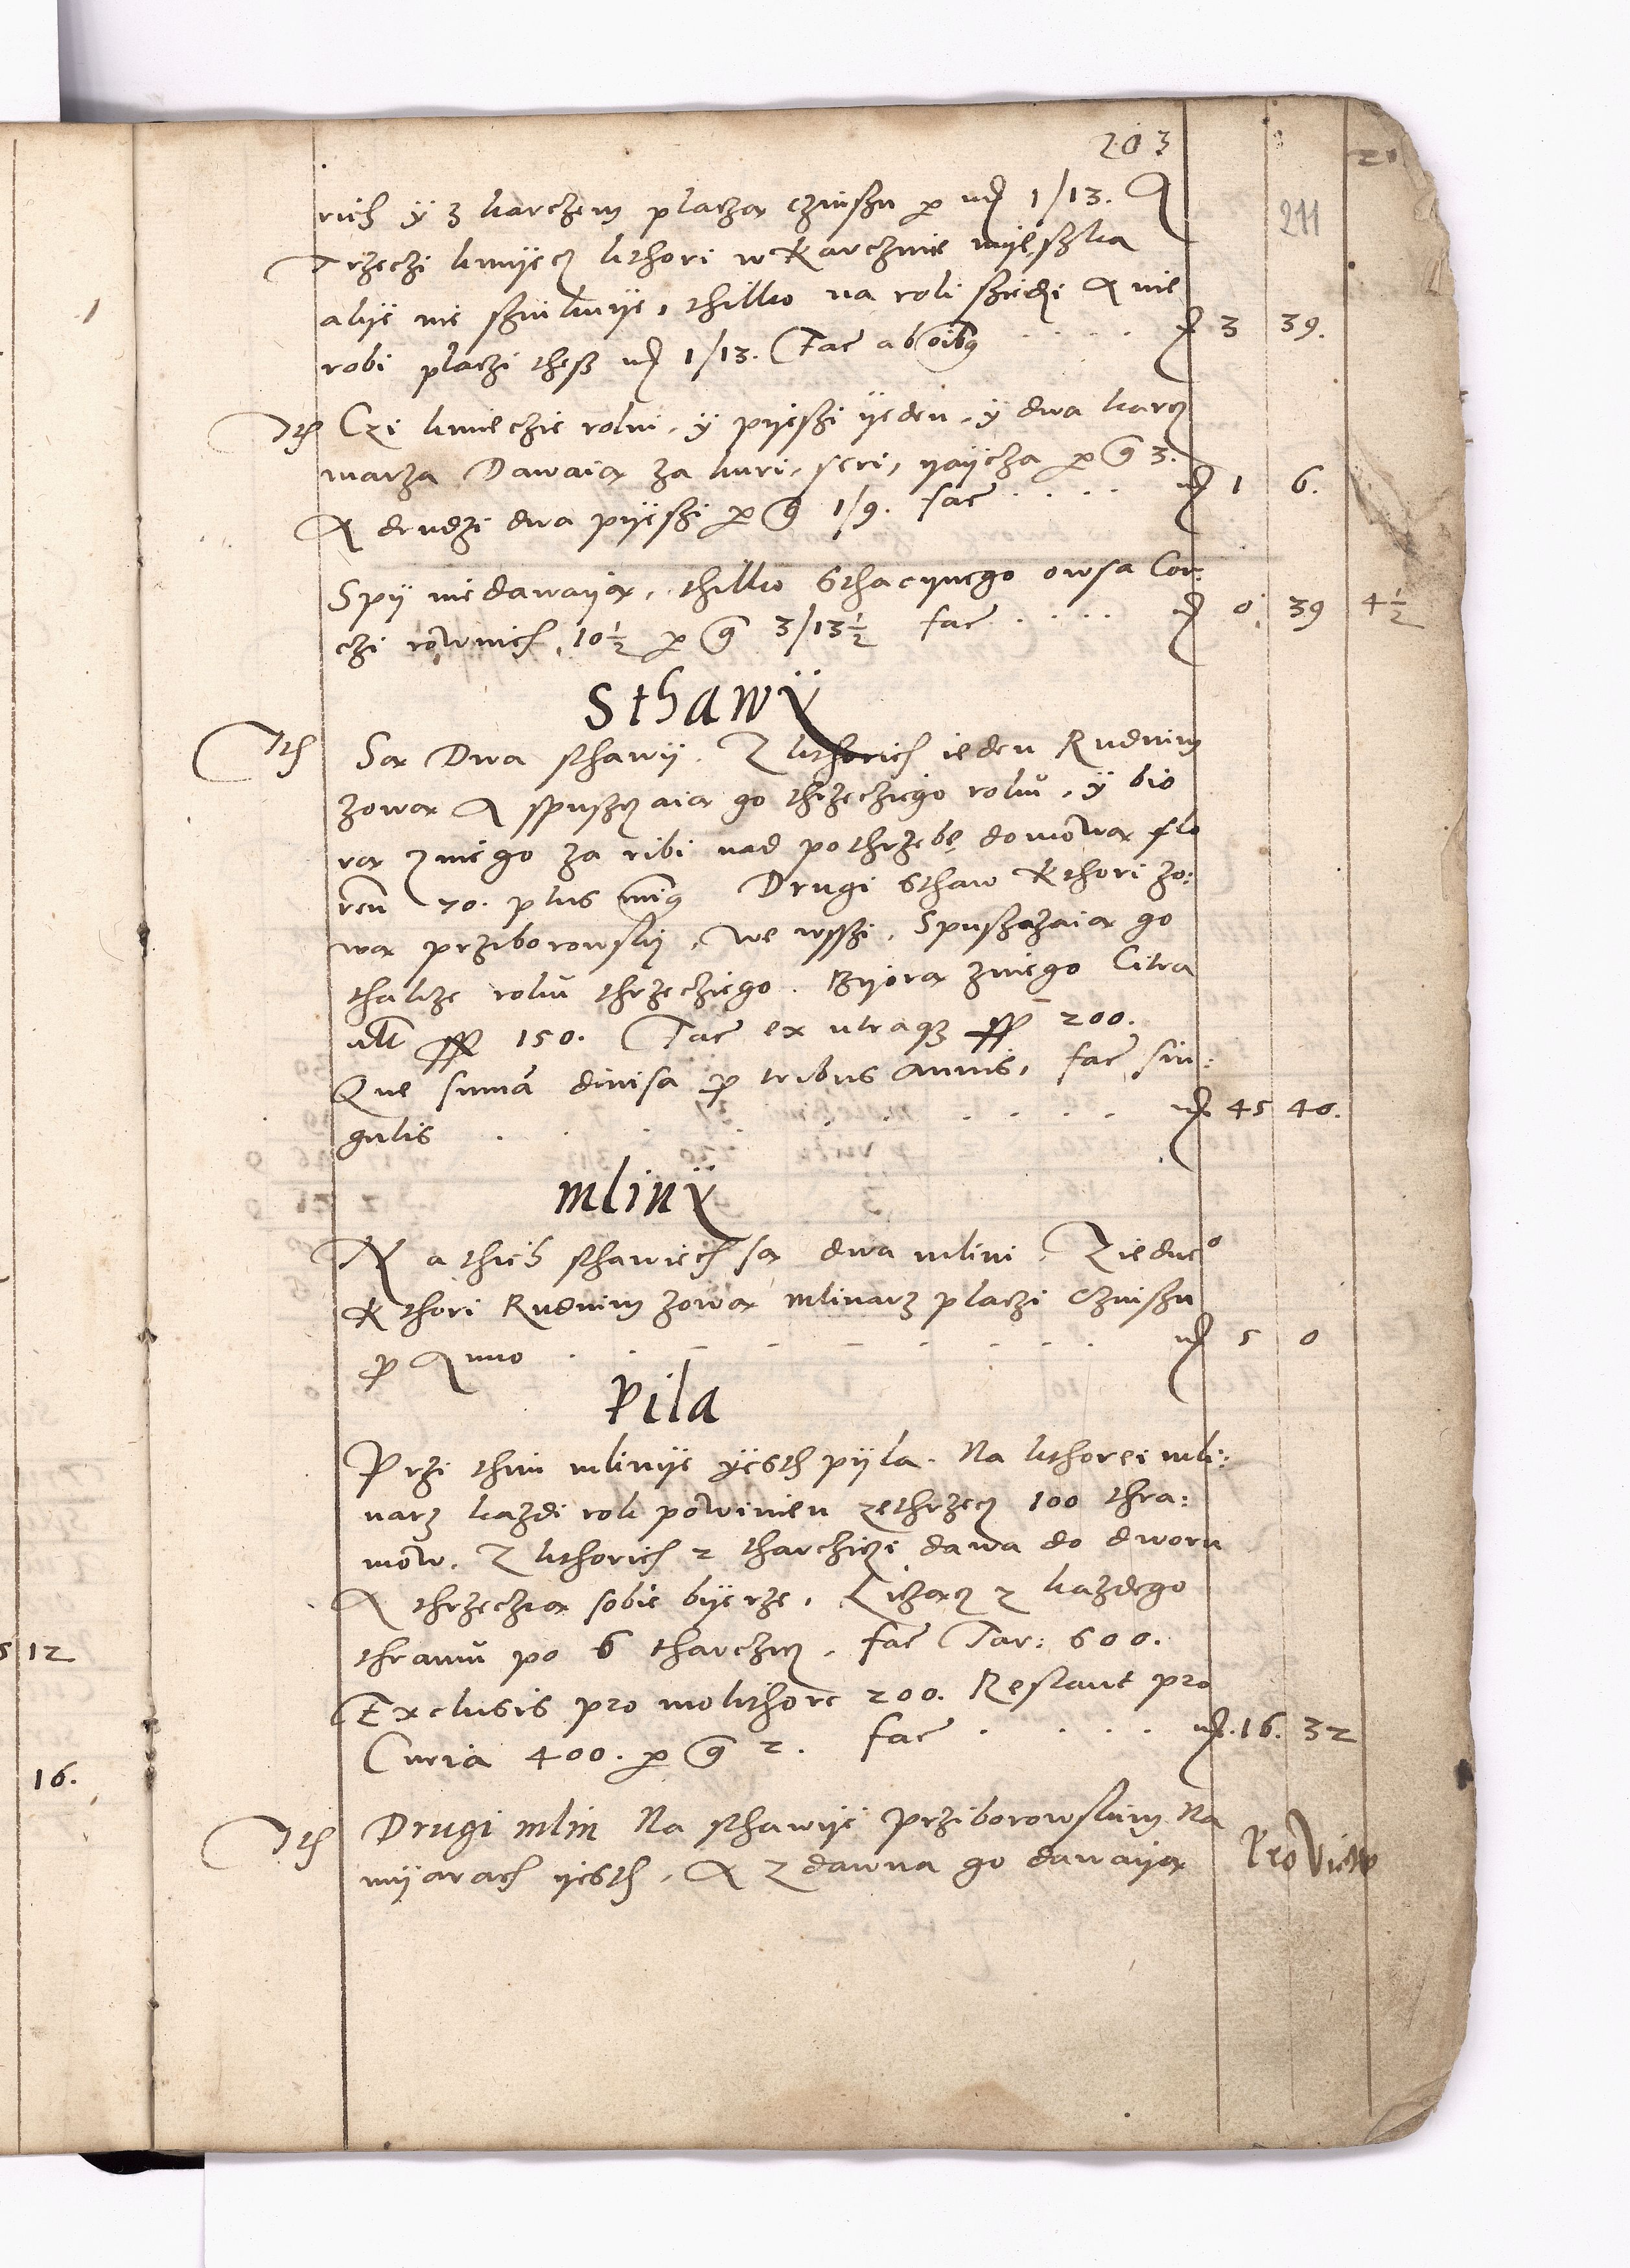 203
211
rich ÿ 3 karczem placza czinszu per mr 1/13. A
Trzeczi kmÿecz kthori w Karczmie mÿeszka
alÿe nie szinkuÿe, thilko na roli sziedzi A nie
robi placzi thesz mr 1/13. Fac ab oibq . . . . mr 3 39.
Ith Czi kmieczie rolni, ÿ pÿeszi ÿeden, ÿ dwa karcz
marza Dawaia za kuri, seri, yaÿcza per g 3.
A drudzi dwa pÿeszi per g 1/9. fac . . . . mr 1 6.
Spÿ nie dawaÿa, thilko Sthacynego owsa Cor:
czi rownich, 10½ per g 3/13½ fac . . . . mr 0. 39 4½
Sthawÿ
Ith Sa Dwa sthawÿ. Z kthorich ieden Rudnim
zowa A spuszczaia go thrzecziego roku, ÿ bio
ra z niego za ribi nad pothrzebe domowa flo
ren 70. plus minq Drugi Sthaw Kthori zo:
wa prziborowskÿ, we wsszi, Spuszczaia go
thakze roku thrzecziego. Bÿora z niego Citra
ult ff 150. Fac ex utraqz ff 200.
Que suma diuisa per tribus Annis, fac sin:
gulis . . . . . . . . mr 45 40.
mlinÿ
N a thich sthawiech sa dwa mlini, Z iedne°
Kthori Rudnim zowa mlinarz placzi Czinszu
p Anno . . . . . . . . mr 5 0
Pila
Przi thim mlinÿe ÿesth pÿla. Na kthorei mli:
narz kazdi rok powinien zethrzecz 100 thra:
mow. Z kthorich 2 tharcziczi dawa do dworu
A thrzeczia sobie bÿerze, Liczacz z kazdego
thramu po 6 tharczicz, fac Tar: 600.
Exclusis pro molithore 200. Restant pro
Curia 400. per g 2. fac . . . . mr. 16. 32
Ith Drugi mlin Na sthawÿe prziborowskim Na
mÿarach ÿesth, A z dawna go dawaÿa
12
16.